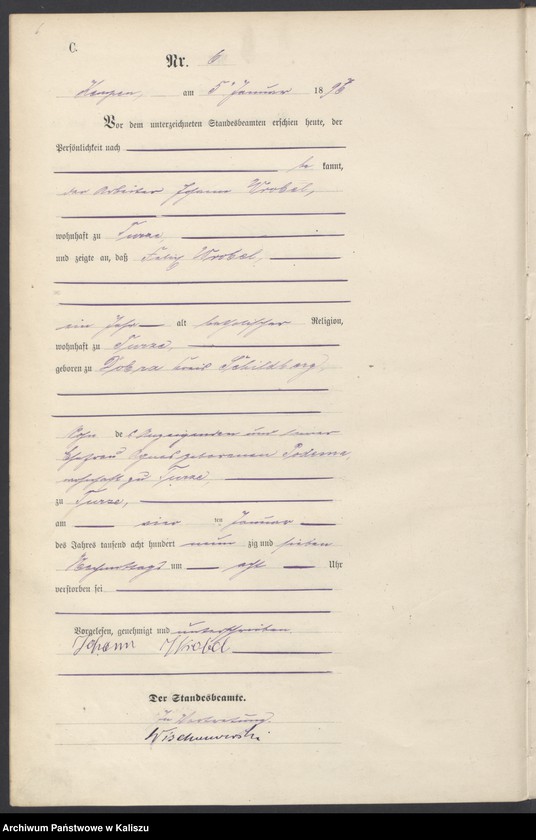 C.
Nr. 6
Kempen, am 5 Januar 1897
Vor dem unterzeichneten Standesbeamten erschien heute, der
Persönlichkeit nach
be kannt,
der Arbeiter Johann Wrobel,
wohnhaft zu Turze,
und zeigte an, daß Felix Wrobel,
ein Jahr alt katholischer Religion,
wohnhaft zu Turze,
geboren zu Dobra Kreis Schildberg,
Sohn des Anzeigenden und seiner
Ehefrau Agnes geborenen
wohnhaft zu Turze,
zu Turze,
am vier ten Januar
des Jahres tausend acht hundert neun zig und sieben
Nachmittags um acht Uhr
verstorben sei
Vorgelesen, genehmigt und unterschrieben
Johann Wrobel
Der Standesbeamte.
In Vertretung.
Archiwum Państwowe w Kaliszu